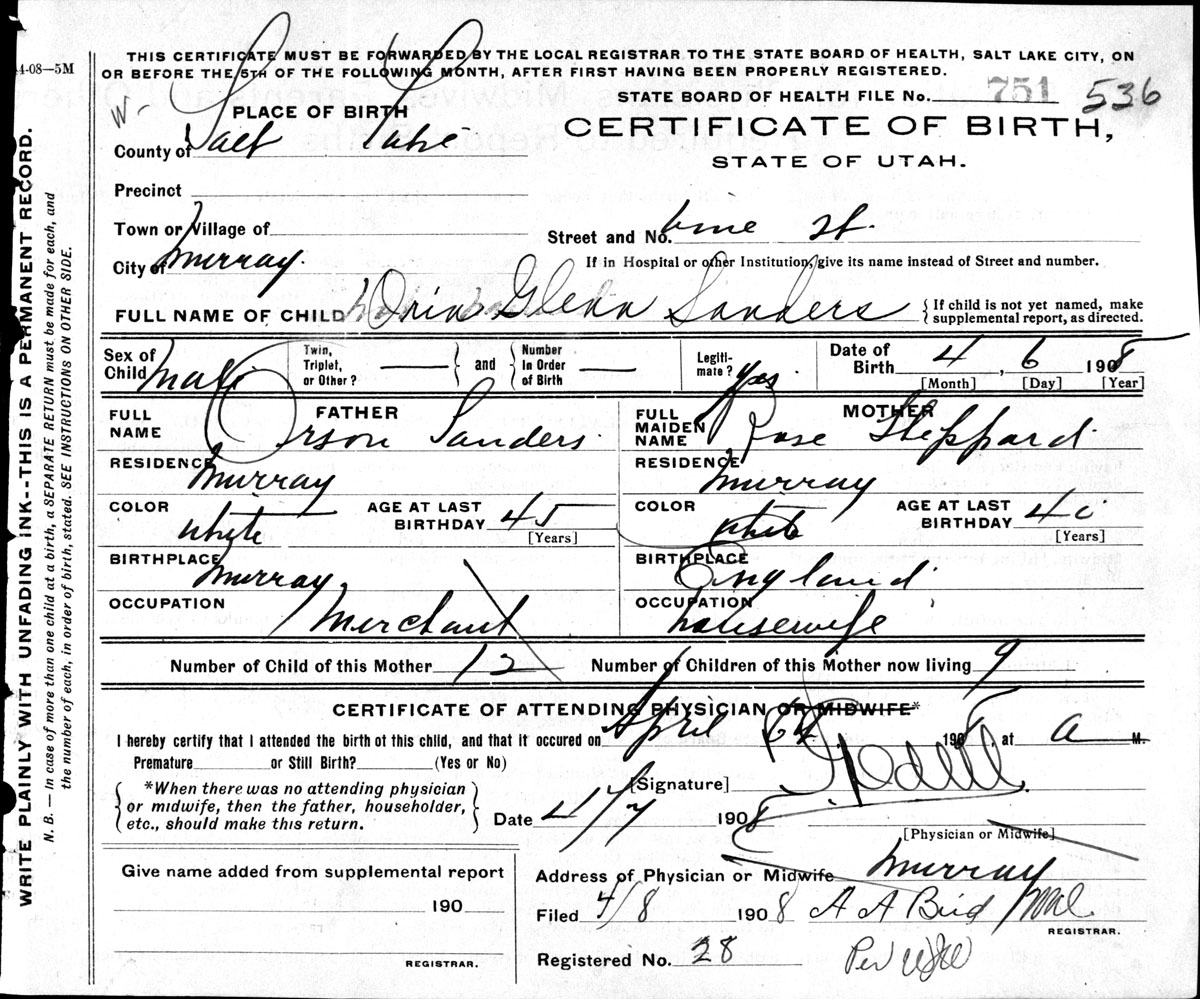 4-08—5M
THIS CERTIFICATE MUST BE FORWARDED BY THE LOCAL REGISTRAR TO THE STATE BOARD OF HEALTH, SALT LAKE CITY, ON
OR BEFORE THE 5TH OF THE FOLLOWING MONTH, AFTER FIRST HAVING BEEN PROPERLY REGISTERED.
STATE BOARD OF HEALTH FILE No. 751 536
W-
PLACE OF BIRTH
CERTIFICATE OF BIRTH,
STATE OF UTAH.
County of Salt Lake
Precinct
Town or Village of
Street and No. Vine St.
City of Murray.
If in Hospital or other Institution, give its name instead of Street and number.
FULL NAME OF CHILD Orin Glenn Sanders {If child is not yet named, make supplemental report, as directed.
Sex of Child Male Twin, Triplet, or Other? — } and { Number In Order of Birth — Legiti- mate? yes Date of Birth 4, 6 1908
[Month] [Day] [Year]
FATHER
FULL NAME Orson Sanders.
RESIDENCE Murray
COLOR White AGE AT LAST BIRTHDAY 45
[Years]
BIRTHPLACE Murray
OCCUPATION Merchant
MOTHER
FULL MAIDEN NAME Rose Sheppard.
RESIDENCE Murray
COLOR White AGE AT LAST BIRTHDAY 40
[Years]
BIRTHPLACE England
OCCUPATION housewife
Number of Child of this Mother 12 Number of Children of this Mother now living 9
CERTIFICATE OF ATTENDING PHYSICIAN OR MIDWIFE*
I hereby certify that I attended the birth of this child, and that it occured on April 6th, 1908, at a M.
Premature or Still Birth? (Yes or No)
[Signature]
{ *When there was no attending physician
or midwife, then the father, householder,
etc., should make this return. }
Date 4/7 1908
[Physician or Midwife]
Give name added from supplemental report
190
REGISTRAR.
Address of Physician or Midwife Murray
Filed 4/8 1908 A A Bird
REGISTRAR.
Registered No. 28 Per
WRITE PLAINLY WITH UNFADING INK--THIS IS A PERMANENT RECORD.
N. B. — In case of more than one child at a birth, a SEPARATE RETURN must be made for each, and
the number of each, in order of birth, stated. SEE INSTRUCTIONS ON OTHER SIDE.